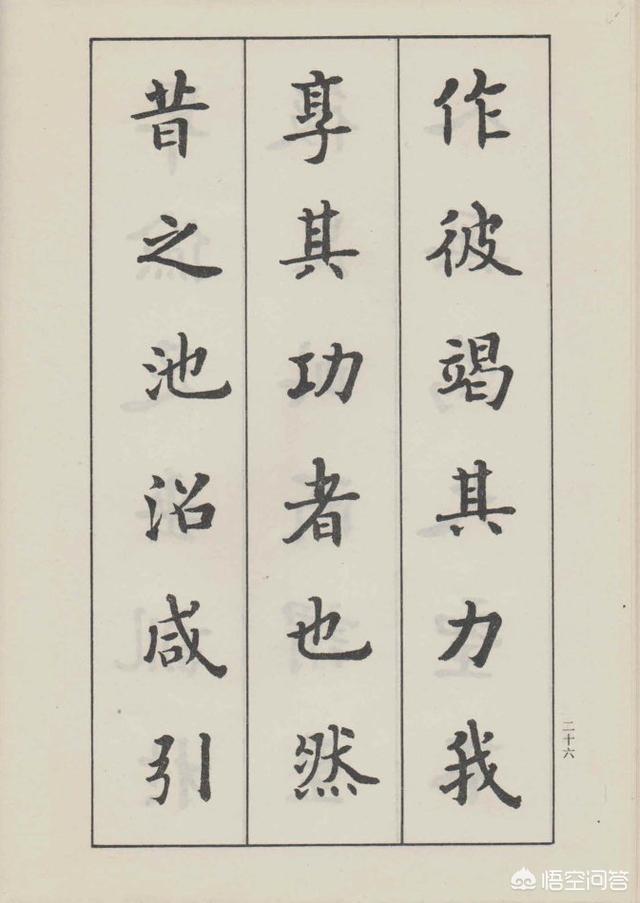 作彼竭其力我
享其功者也然
昔之池沼咸引
二十六
悟空问答